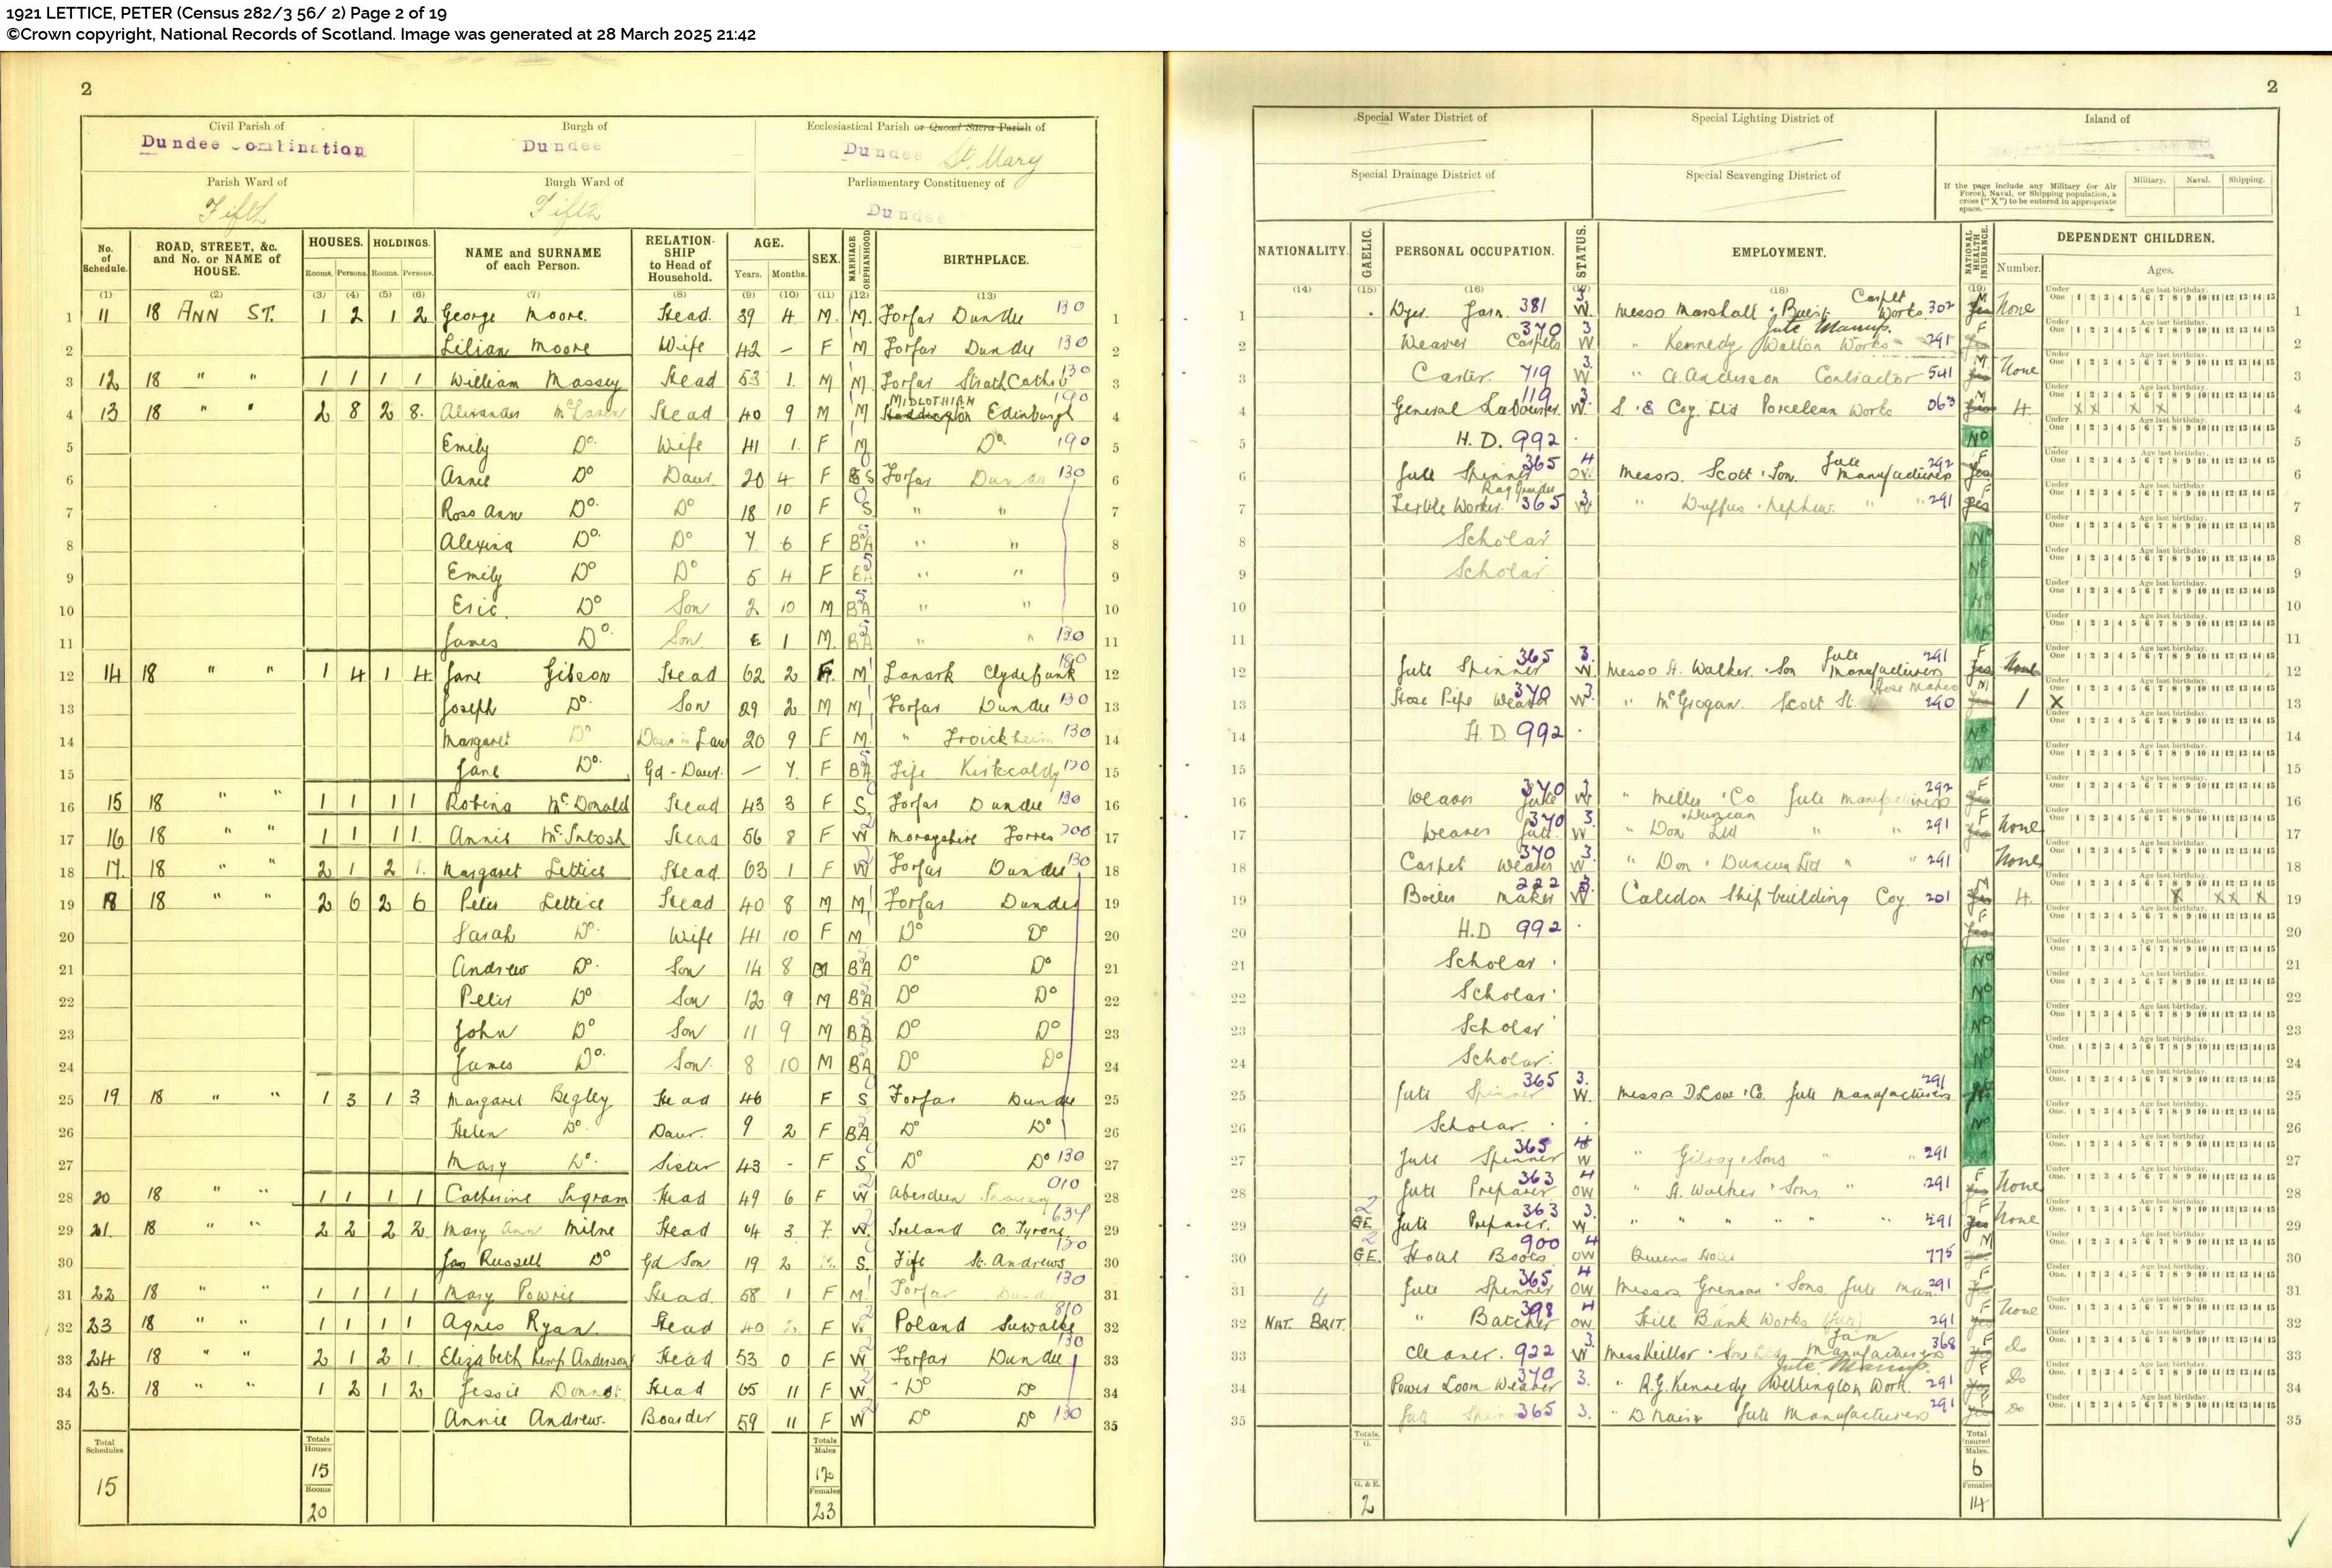 1921 LETTICE, PETER (Census 282/3 56/ 2) Page 2 of 19
©Crown copyright, National Records of Scotland. Image was generated at 28 March 2025 21:42
2
Civil Parish of Burgh of Ecclesiastical Parish or Quoad Sacra Parish of
Dundee Combination Dundee Dundee St. Mary
Parish Ward of Burgh Ward of Parliamentary Constituency of
Fifth Fifth Dundee
No. of Schedule. ROAD, STREET, &c. and No. or NAME of HOUSE. HOUSES. HOLDINGS. NAME and SURNAME of each Person. RELATIONSHIP to Head of Household. AGE. SEX. MARRIAGE ORPHANHOOD BIRTHPLACE.
Rooms. Persons. Rooms. Persons. Years. Months.
(1) (2) (3) (4) (5) (6) (7) (8) (9) (10) (11) (12) (13)
1 11 18 ANN ST. 1 2 1 2 George Moore. Head 39 4 M. M. Forfar Dundee 130 1
2 Lilian Moore Wife 42 - F M Forfar Dundee 130 2
3 12 18 " " 1 1 1 1 William Massey Head 53 1. M M Forfar Strathcathro 130 3
4 13 18 " " 2 8 2 8. Alexander McLaren Head 40 9 M M MIDLOTHIAN Haddington Edinburgh 190 4
5 Emily Do. Wife 41 1. F M Do. 190 5
6 Annie Do Daur. 20 4 F S Forfar Dundee 130 6
7 Rose Ann Do. Do 18 10 F S " " 7
8 Alexina Do. Do 7 6 F BA " " 8
9 Emily Do Do 5 4 F BA " " 9
10 Eric. Do Son 2 10 M BA " " 10
11 James Do. Son. 1 M. BA " " 130 11
12 14 18 " " 1 4 1 4 Jane Gibson Head 62 2 F. M Lanark Clydebank 180 12
13 Joseph Do. Son 29 2 M M Forfar Dundee 130 13
14 Margaret Do Daur in Law 20 9 F M. " Froickheim 130 14
15 Jane Do. Gd-Daur. — 7 F BA Fife Kirkcaldy 15
16 15 18 " " 1 1 1 1 Robina McDonald Head 43 3 F S. Forfar Dundee 130 16
17 16 18 " " 1 1 1 1. Annie McIntosh Head 56 8 F W Morayshire Forres 200 17
18 17. 18 " " 2 1 2 1. Margaret Lettice Head 63 1 F W Forfar Dundee 130 18
19 18 18 " " 2 6 2 6 Peter Lettice Head 40 8 M M Forfar Dundee 19
20 Sarah Do. Wife 41 10 F M Do Do 20
21 Andrew Do. Son 14 8 M BA Do Do 21
22 Peter Do Son 12 9 M BA Do Do 22
23 John Do Son 11 9 M BA Do Do 23
24 James Do. Son. 8 10 M BA Do Do 24
25 19 18 " " 1 3 1 3 Margaret Begley Head 46 F S Forfar Dundee 25
26 Helen Do. Daur. 9 2 F BA Do Do 26
27 Mary Do. Sister 43 - F S Do Do 130 27
28 20 18 " " 1 1 1 1 Catherine Ingram Head 49 6 F W Aberdeen 010 28
29 21. 18 " " 2 2 2 2 Mary Ann Milne Head 64 3 F. W. Ireland Co. Tyrone. 634 29
30 Jas Russell Do Gd Son 19 2 M. S. Fife St. Andrews 30
31 22 18 " " 1 1 1 1 Mary Powrie Head 58 1 F M Forfar Dundee 130 31
32 23 18 " " 1 1 1 1 Agnes Ryan. Head 40 F W Poland Suwalke 810 32
33 24 18 " " 2 1 2 1. Elizabeth Kemp Anderson Head 53 0 F W Forfar Dundee 130 33
34 25. 18 " " 1 2 1 2 Jessie Donnot Head 65 11 F W " Do Do 34
35 Annie Andrew. Boarder 59 11 F W Do Do 130 35
Total Schedules Totals Houses Totals Males
15 15 12
Rooms Females
20 23
2
Special Water District of Special Lighting District of Island of
Special Drainage District of Special Scavenging District of
If the page include any Military (or Air Force), Naval, or Shipping population, a cross ("X") to be entered in appropriate space. Military. Naval. Shipping.
NATIONALITY. GAELIC. PERSONAL OCCUPATION. STATUS. EMPLOYMENT. NATIONAL HEALTH INSURANCE. DEPENDENT CHILDREN.
Number. Ages.
(14) (15) (16) (18) (19)
Under One Age last birthday. 1 2 3 4 5 6 7 8 9 10 11 12 13 14 15
1 Dyer Yarn. 381 W. Messrs Marshall & Buist. Carpet Works. 302 M Yes None 1
2 Weaver Carpets 370 3 W " Kennedy Walton Works Jute Manufs. 291 F Yes 2
3 Carter. 719 3. W " A. Anderson Contractor 541 M Yes None 3
4 General Labourer. 119 3 W. S. & Coy. Ltd Porcelean Works 063 M Yes 4. X X X X 4
5 H.D. 992 No 5
6 Jute Spinner 365 4 OW. Messrs. Scott & Son. Jute Manufacturers 292 F Yes 6
7 Textile Worker. 365 3 W " Duffus & Nephew. " " 291 F Yes 7
8 Scholar No 8
9 Scholar. No 9
10 No 10
11 No 11
12 Jute Spinner 365 3. W Messrs H. Walker & Son Jute Manufacturers 291 F Yes None 12
13 Hose Pipe Weaver 370 3. W " McGrogan. Scott St. Hose Maker 290 M Yes 1 X 13
14 H.D. 992 No 14
15 No 15
16 Weaver Jute 370 3. W " Mellor & Co. Jute Manufacturers 292 F Yes 16
17 Weaver Jute. 370 3. W " Don & Duncan Ltd " " 291 F Yes None 17
18 Carpet Weaver 370 3. W " Don & Duncan Ltd " " 291 None 18
19 Boiler Maker 222 3. W Caledon Ship building Coy. 201 M Yes 4. X X X X 19
20 H.D 992 F Yes 20
21 Scholar. No 21
22 Scholar No 22
23 Scholar No 23
24 Scholar. No 24
25 Jute Spinner 365 3. W. Messrs D. Low & Co. Jute Manufacturers 291 No 25
26 Scholar. No 26
27 Jute Spinner 365 4 W " Gilroy & Sons " " 291 27
28 Jute Preparer 363 4 OW " H. Walker & Sons " 291 F Yes None 28
29 2 GE Jute Preparer. 363 3. W " " " " " " 291 F Yes None 29
30 2 GE. Hotel Boots. 900 4 OW Queens Hotel 775 M Yes 30
31 Jute Spinner 365 4 OW Messrs Sons Jute Man. 291 F Yes 31
32 4 NAT. BRIT. " Batcher 398 4 OW Hill Bank Works (Jute) 291 F Yes None 32
33 Cleaner. 922 3. W Mess Keillor & Son Ltd Jam Manufacturers 368 F Yes Do 33
34 Power Loom Weaver 370 3. " R.G. Kennedy Wellington Work. Jute Manufs. 291 F Yes Do 34
35 Jute Spin 365 3. " D. Nairn Jute Manufacturers 291 F Yes Do 35
Totals. G. Total Insured Males.
6
G. & E. Females
2 14